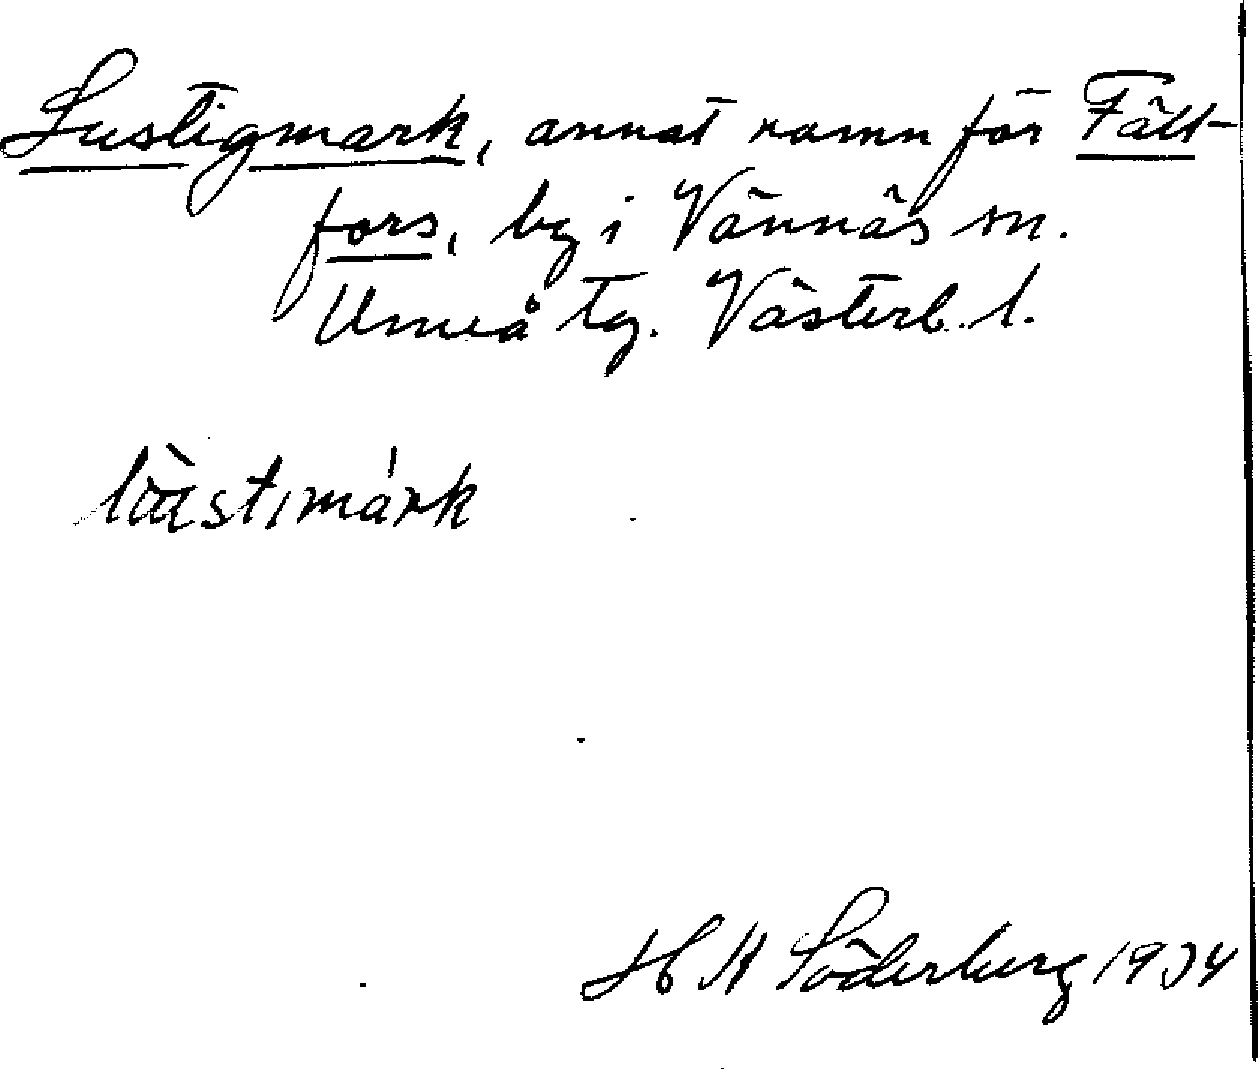 Lustigmark, annat namn för Fält-
fors, by i Vännäs sn.
Umeå tg. Västerb. l.
H M Söderberg 1934